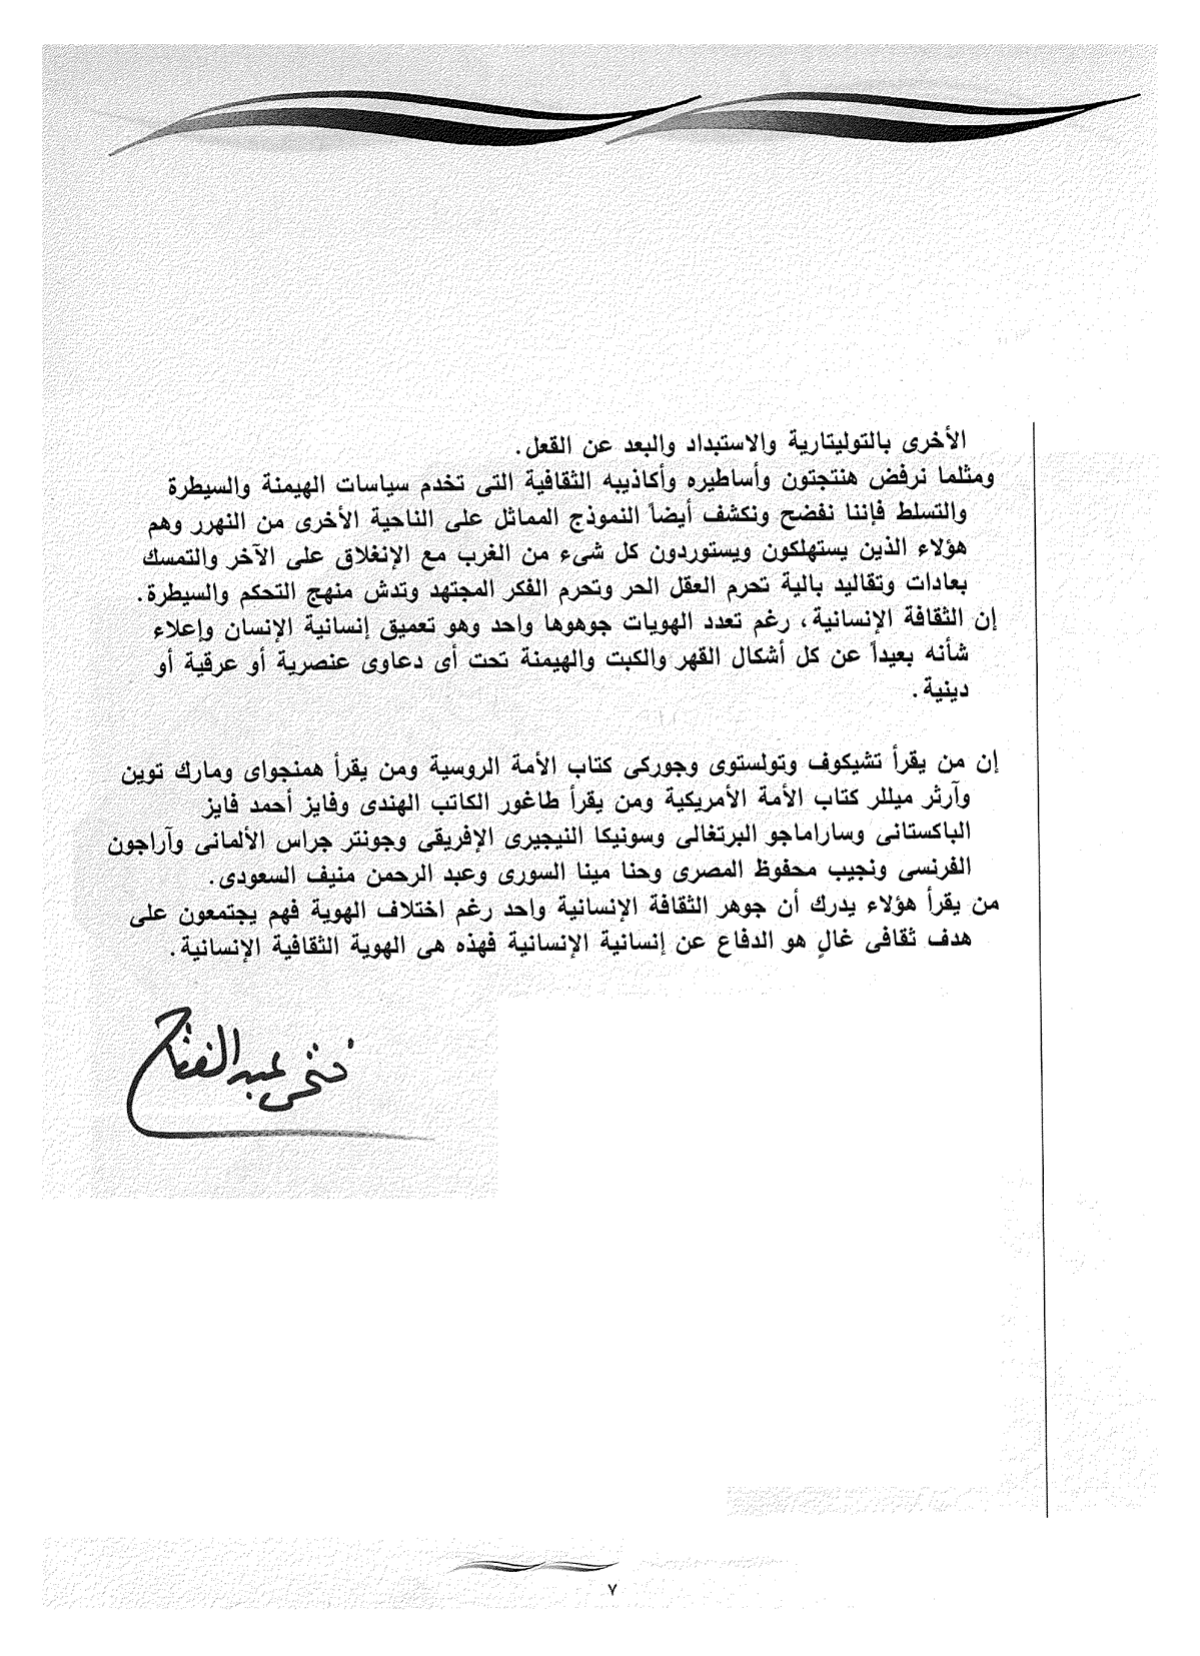 الأخرى بالتوليتارية والاستبداد والبعد عن القعل.
ومثلما نرفض هنتجتون وأساطيره وأكاذيبه الثقافية التى تخدم سياسات الهيمنة والسيطرة
والتسلط فإننا نفضح ونكشف أيضاً النموذج المماثل على الناحية الأخرى من النهرر وهم
هؤلاء الذين يستهلكون ويستوردون كل شىء من الغرب مع الإنغلاق على الآخر والتمسك
بعادات وتقاليد بالية تحرم العقل الحر وتحرم الفكر المجتهد وتدش منهج التحكم والسيطرة.
إن الثقافة الإنسانية، رغم تعدد الهويات جوهوها واحد وهو تعميق إنسانية الإنسان وإعلاء
شأنه بعيداً عن كل أشكال القهر والكبت والهيمنة تحت أى دعاوى عنصرية أو عرقية أو
دينية.
إن من يقرأ تشيكوف وتولستوى وجوركى كتاب الأمة الروسية ومن يقرأ همنجواى ومارك توين
وآرثر ميللر كتاب الأمة الأمريكية ومن يقرأ طاغور الكاتب الهندى وفايز أحمد فايز
الباكستانى وساراماجو البرتغالى وسونيكا النيجيرى الإفريقى وجونتر جراس الألمانى وآراجون
الفرنسى ونجيب محفوظ المصرى وحنا مينا السورى وعبد الرحمن منيف السعودى.
من يقرأ هؤلاء يدرك أن جوهر الثقافة الإنسانية واحد رغم اختلاف الهوية فهم يجتمعون على
هدف ثقافى غالٍ هو الدفاع عن إنسانية الإنسانية فهذه هى الهوية الثقافية الإنسانية.
فتحى عبد الفتاح
٧